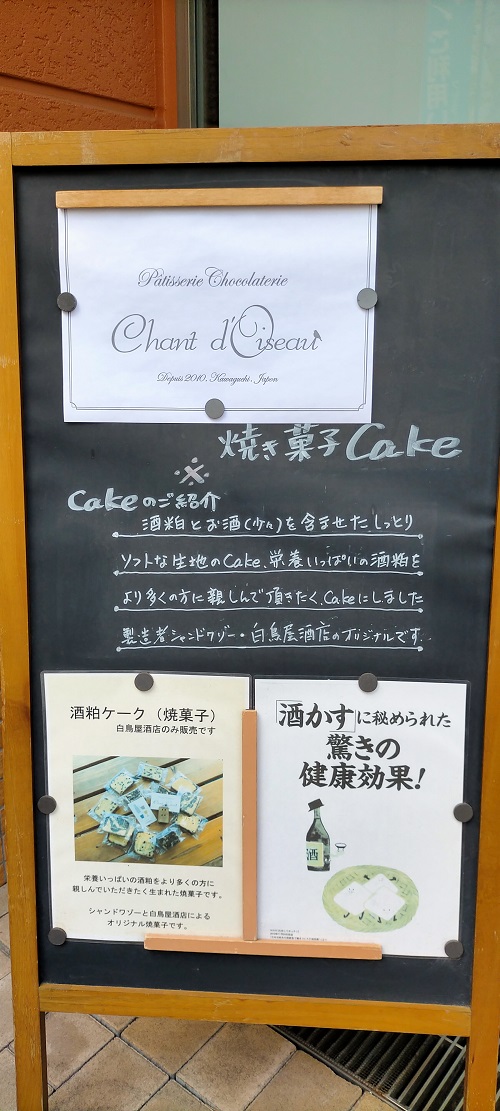 Pâtisserie Chocolaterie
Chant d'Oiseau
Depuis 2010. Kawaguchi. Japon
焼き菓子Cake
※
Cakeのご紹介
酒粕とお酒(少々)を含ませたしっとり
ソフトな生地のCake、栄養いっぱいの酒粕を
より多くの方に親しんで頂きたく、Cakeにしました
製造者シャンドワゾー・白鳥屋酒店のオリジナルです.
酒粕ケーク（焼菓子）
白鳥屋酒店のみ販売です
栄養いっぱいの酒粕をより多くの方に
親しんでいただきたく生まれた焼菓子です。
シャンドワゾーと白鳥屋酒店による
オリジナル焼菓子です。
「酒かす」に秘められた
驚きの
健康効果!
酒